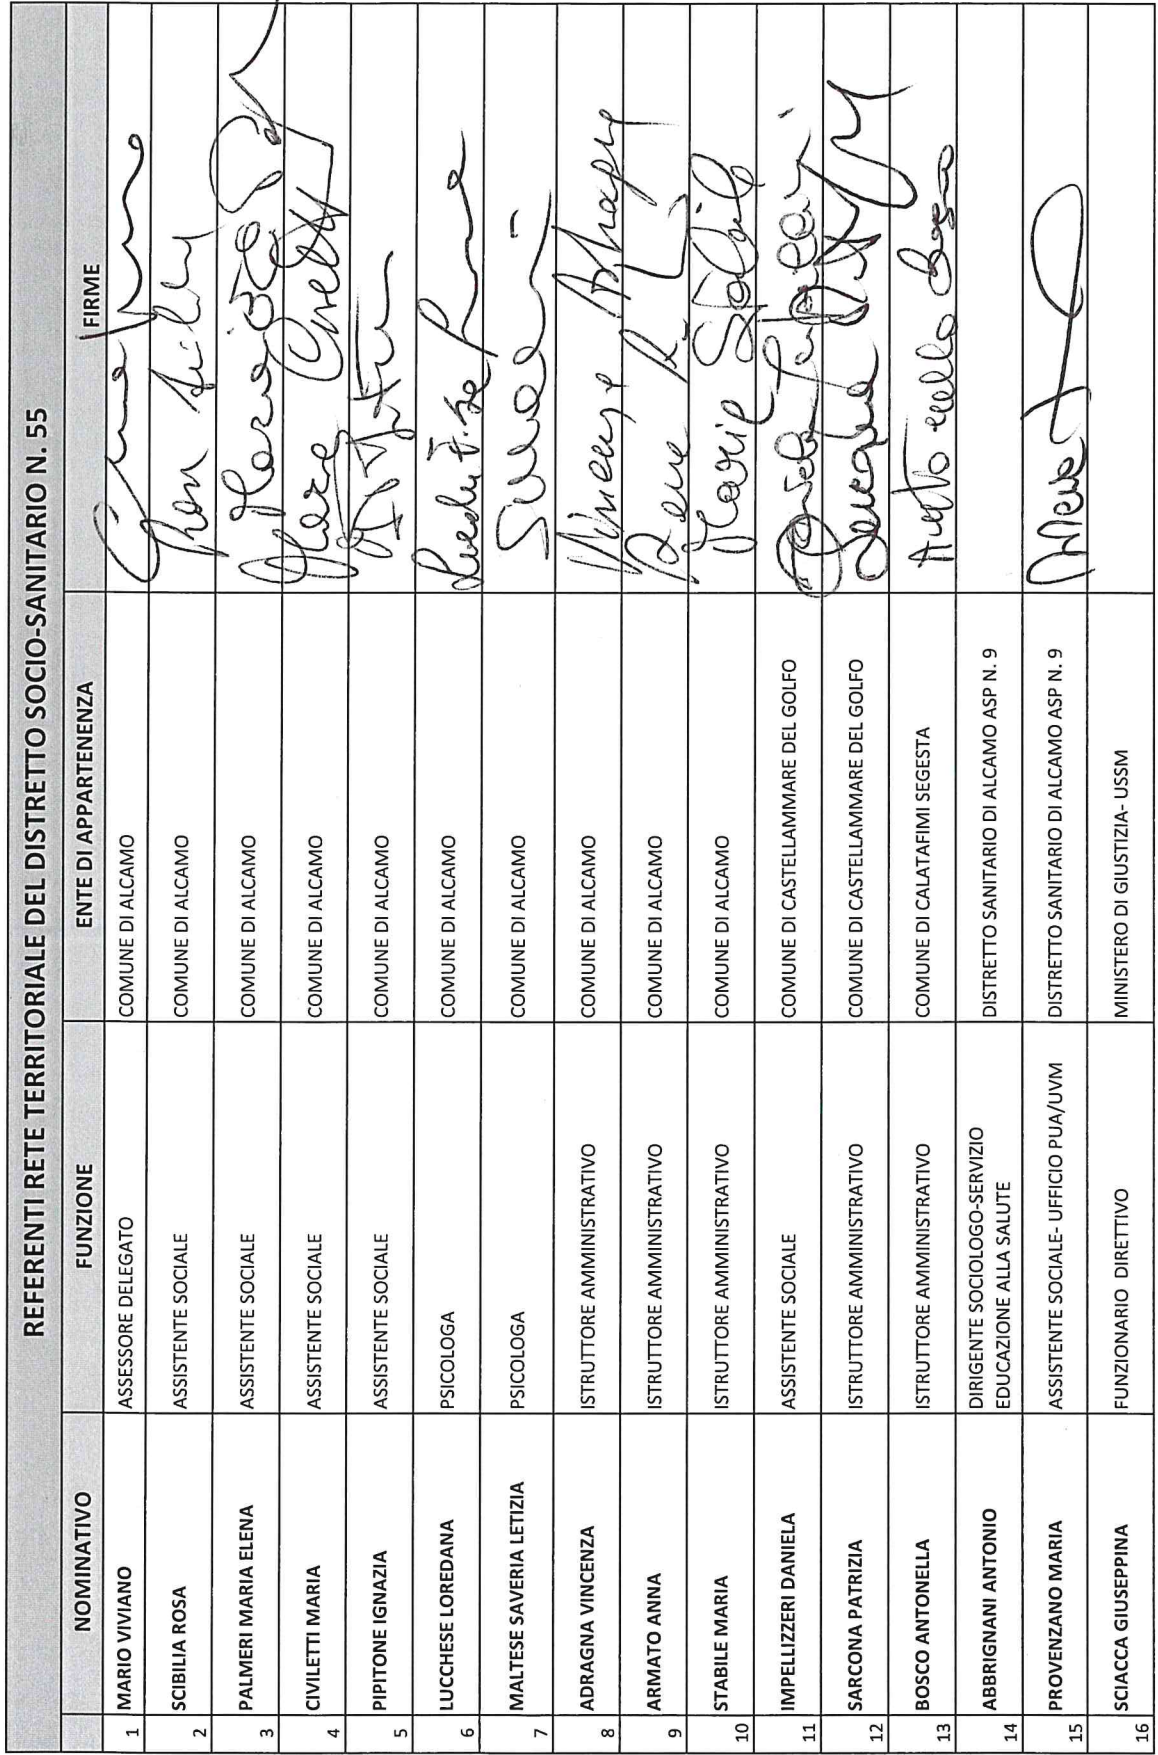 REFERENTI RETE TERRITORIALE DEL DISTRETTO SOCIO-SANITARIO N. 55
NOMINATIVO FUNZIONE ENTE DI APPARTENENZA FIRME
1 MARIO VIVIANO ASSESSORE DELEGATO COMUNE DI ALCAMO
2 SCIBILIA ROSA ASSISTENTE SOCIALE COMUNE DI ALCAMO
3 PALMERI MARIA ELENA ASSISTENTE SOCIALE COMUNE DI ALCAMO
4 CIVILETTI MARIA ASSISTENTE SOCIALE COMUNE DI ALCAMO
5 PIPITONE IGNAZIA ASSISTENTE SOCIALE COMUNE DI ALCAMO
6 LUCCHESE LOREDANA PSICOLOGA COMUNE DI ALCAMO
7 MALTESE SAVERIA LETIZIA PSICOLOGA COMUNE DI ALCAMO
8 ADRAGNA VINCENZA ISTRUTTORE AMMINISTRATIVO COMUNE DI ALCAMO
9 ARMATO ANNA ISTRUTTORE AMMINISTRATIVO COMUNE DI ALCAMO
10 STABILE MARIA ISTRUTTORE AMMINISTRATIVO COMUNE DI ALCAMO
11 IMPELLIZZERI DANIELA ASSISTENTE SOCIALE COMUNE DI CASTELLAMMARE DEL GOLFO
12 SARCONA PATRIZIA ISTRUTTORE AMMINISTRATIVO COMUNE DI CASTELLAMMARE DEL GOLFO
13 BOSCO ANTONELLA ISTRUTTORE AMMINISTRATIVO COMUNE DI CALATAFIMI SEGESTA
14 ABBRIGNANI ANTONIO DIRIGENTE SOCIOLOGO-SERVIZIO
EDUCAZIONE ALLA SALUTE DISTRETTO SANITARIO DI ALCAMO ASP N. 9
15 PROVENZANO MARIA ASSISTENTE SOCIALE- UFFICIO PUA/UVM DISTRETTO SANITARIO DI ALCAMO ASP N. 9
16 SCIACCA GIUSEPPINA FUNZIONARIO DIRETTIVO MINISTERO DI GIUSTIZIA- USSM